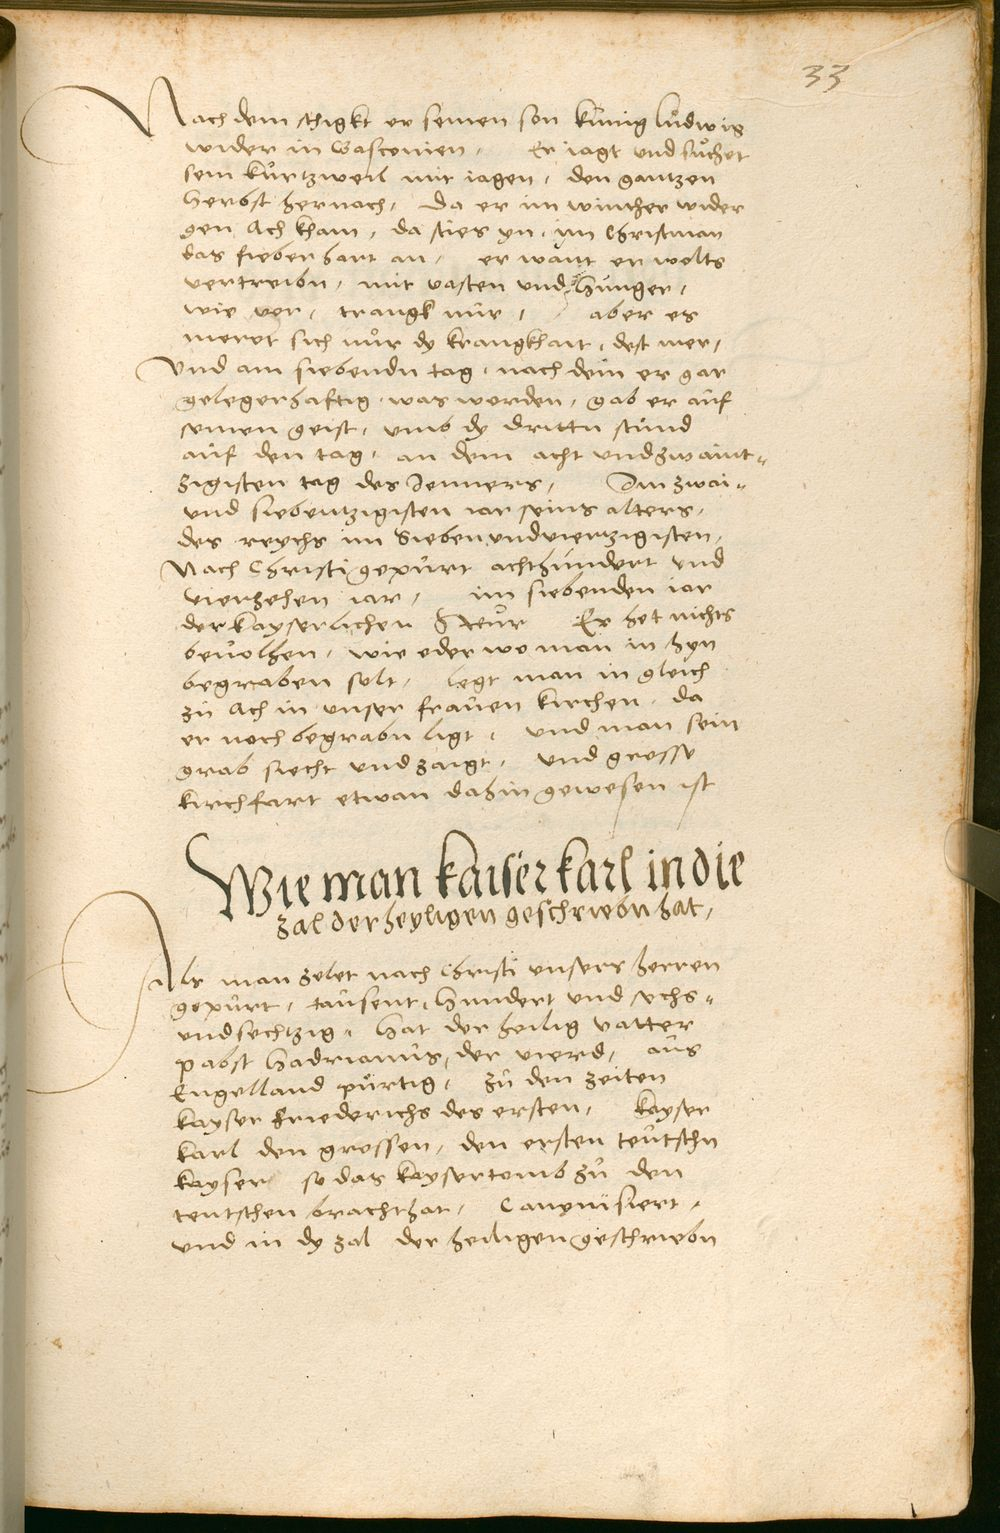 33
Nach dem schigkt er seinen son künig ludwig
wider in Gasconien, Er iagt und sůchet
sein kůrtzweil mit iagen, den gantzen
herbst hernach, Da er im winther wider
gen Ach kham, da sties yn, im Christman
das fieber hart an, er wänt er wolts
vertreibn, mit vasten und hunger,
wie vor, trangk nür, aber es
meret sich nůr dy krangkhait, dest mer,
Und am siebendn tag, nach dem er gar
gelegerhafftig was worden, gab er auf
seinen geist, umb dy drittn stund
auf den tag, an dem acht undzwaint-
zigisten tag des Jenners, Im zwai-
und siebentzigisten iar seins alters,
des reychs im Siebenundviertzigisten,
Nach Christi gepůrt achthundert und
vierzehen iar, im siebenden iar
der kayserlichen Er het nichts
bevolhen, wie oder wo man in hyn
begraben solt, legt man in gleich
zů Ach in unser frauen kirchen, da
er noch begrabn ligt, und man sein
grab siecht und zaigt, und grosse
kirchfart etwan dahin gewesen ist
Wie man kaiser karl in die
zal der heyligen geschriebn hat,
Als man zelet nach Christi unsers herren
gepůrt, tausent, hundert und sechs-
undsechtzig, hat der heilig vatter
pabst Hadrianus, der vierd, aus
Engelland pürtig, zů den zeiten
kayser Friederichs des ersten, kayser
karl den grossen, den ersten teůtschn
kayser so das kaysertomb zů den
teutschen bracht hat, Canonisiert,
und in dy zal der heiligen geschriebn